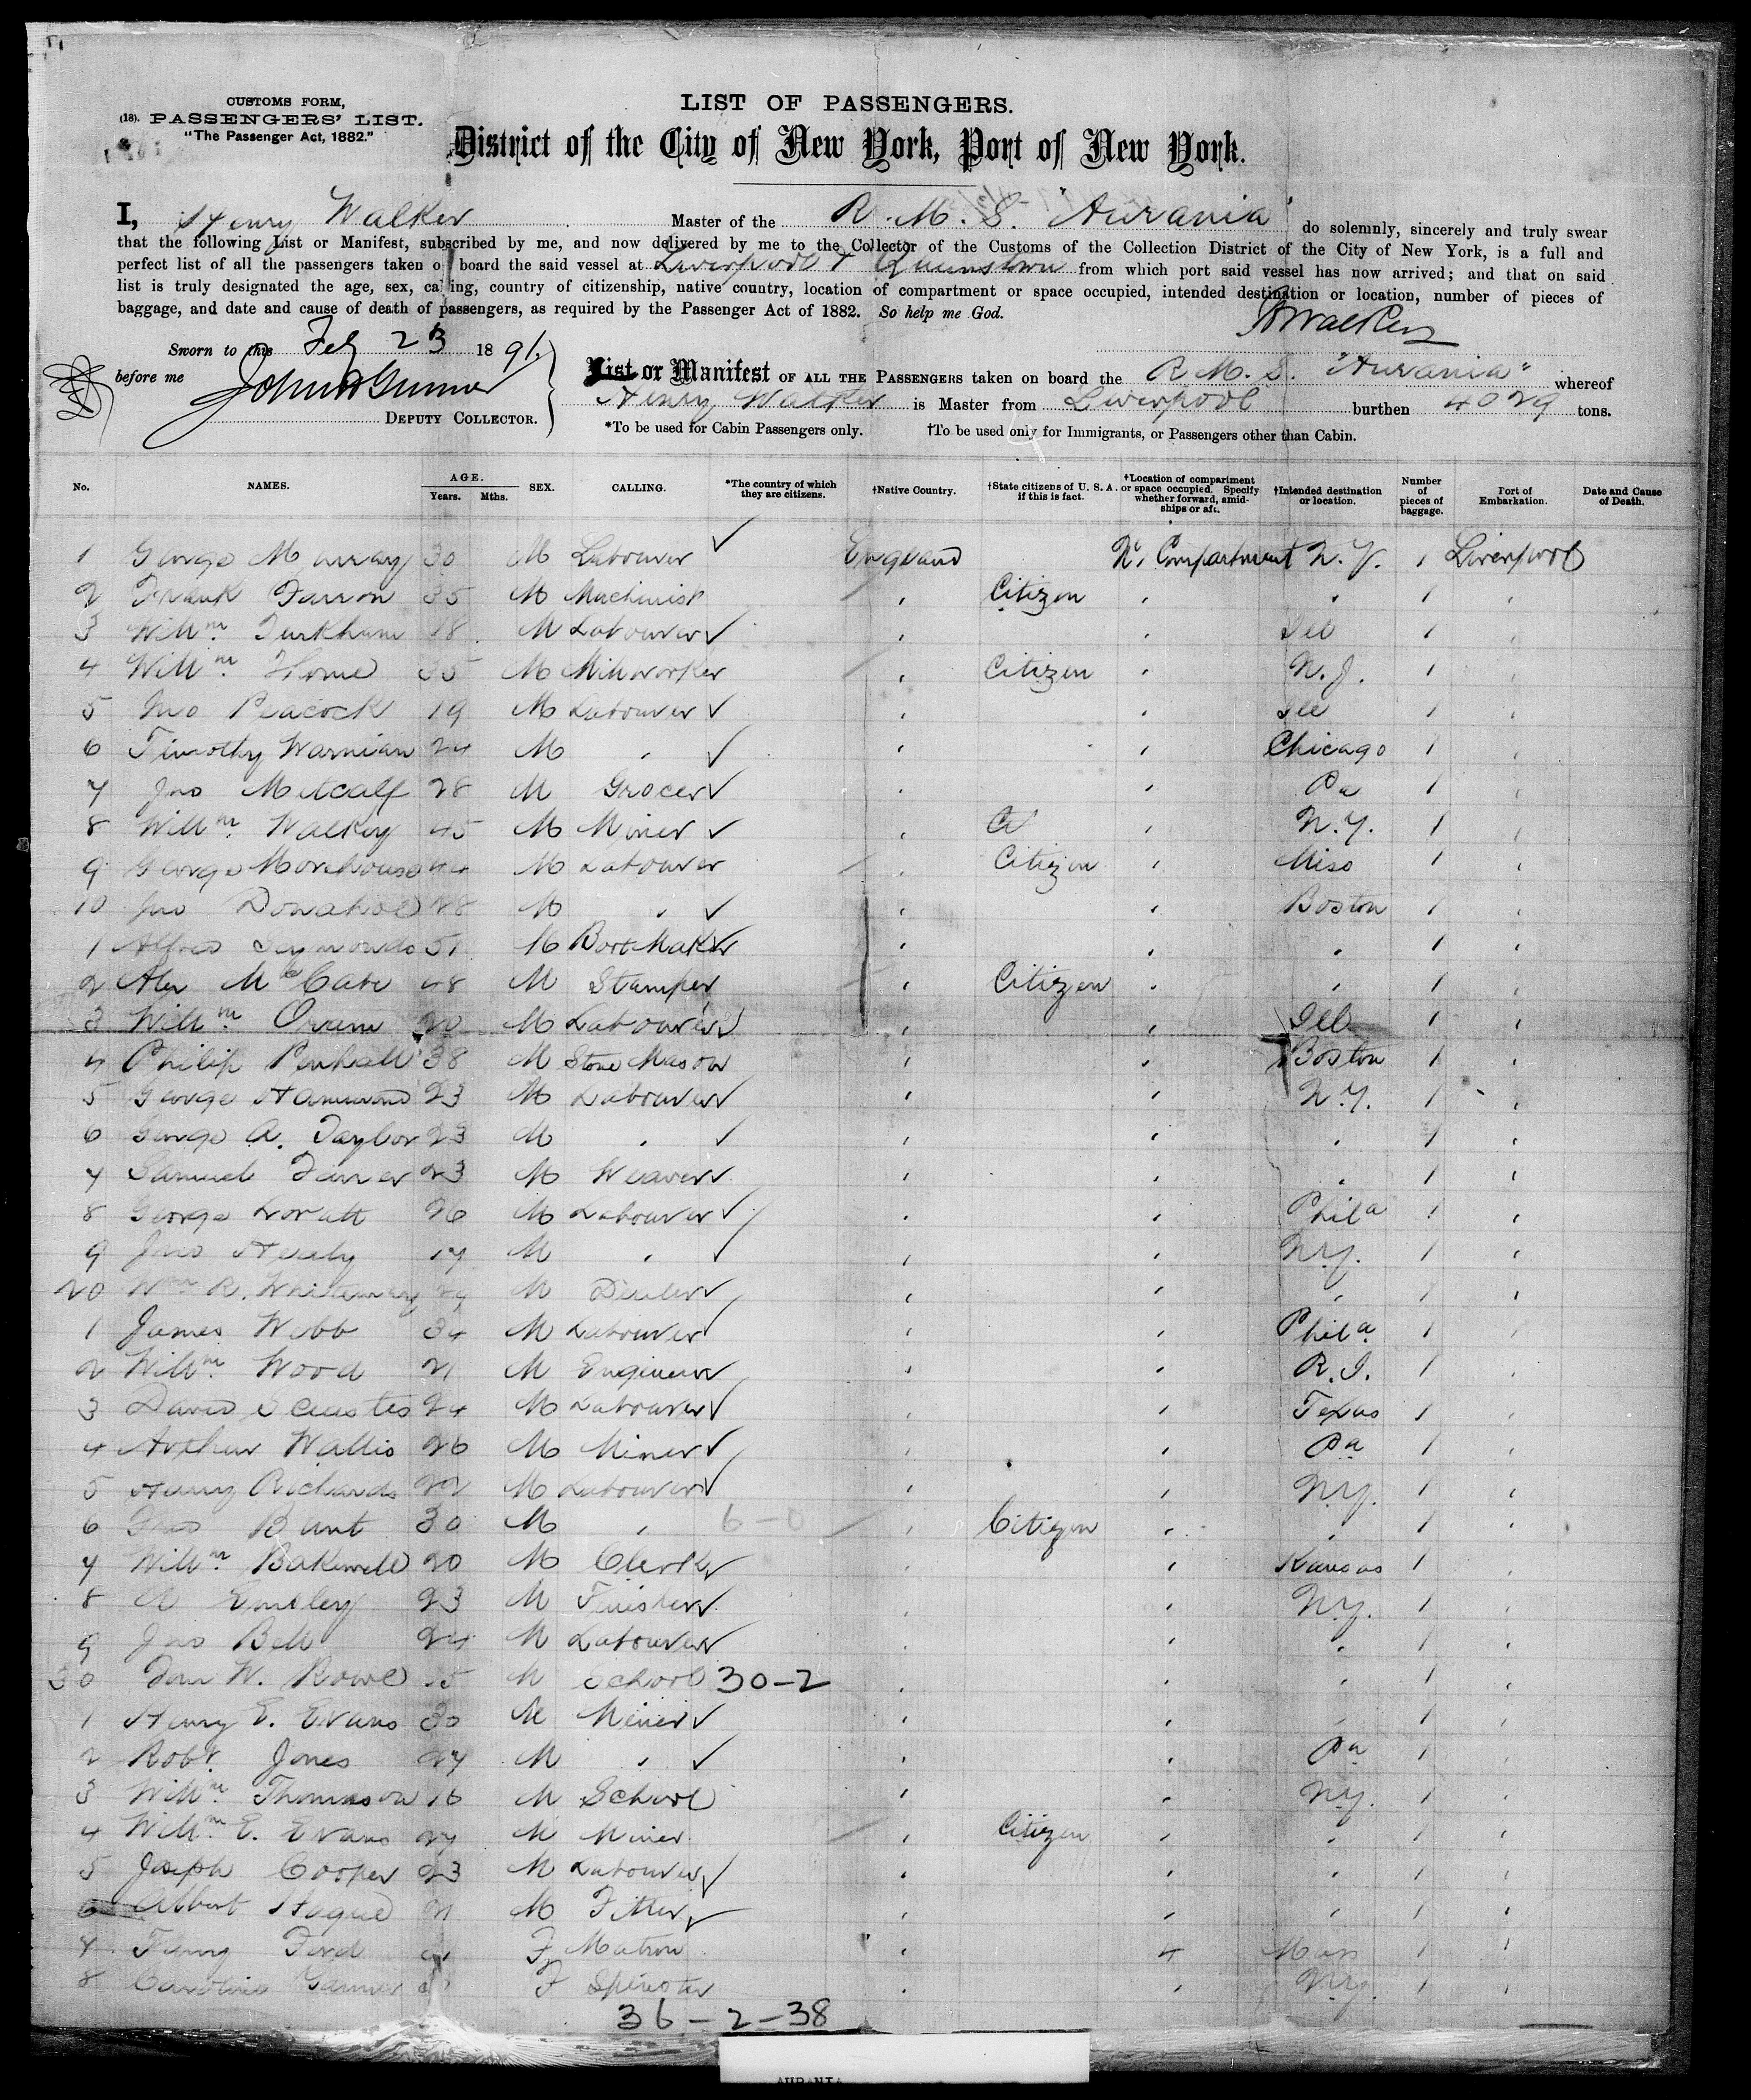 CUSTOMS FORM,
(18). PASSENGERS' LIST.
"The Passenger Act, 1882."
LIST OF PASSENGERS.
District of the City of New York, Port of New York.
I, Henry Walker Master of the R. M. S. "Aurania" do solemnly, sincerely and truly swear
that the following List or Manifest, subscribed by me, and now delivered by me to the Collector of the Customs of the Collection District of the City of New York, is a full and
perfect list of all the passengers taken on board the said vessel at Liverpool & Queenstown from which port said vessel has now arrived; and that on said
list is truly designated the age, sex, calling, country of citizenship, native country, location of compartment or space occupied, intended destination or location, number of pieces of
baggage, and date and cause of death of passengers, as required by the Passenger Act of 1882. So help me God.
HWalker
Sworn to this Feb 23 1891.
before me
DEPUTY COLLECTOR.
List or Manifest OF ALL THE PASSENGERS taken on board the R. M. S. "Aurania" whereof
Henry Walker is Master from Liverpool burthen 4029 tons.
*To be used for Cabin Passengers only. †To be used only for Immigrants, or Passengers other than Cabin.
No. NAMES. AGE. Years. Mths. SEX. CALLING. *The country of which they are citizens. †Native Country. †State citizens of U. S. A. if this is fact. †Location of compartment or space occupied. Specify whether forward, amidships or aft. †Intended destination or location. Number of pieces of baggage. Port of Embarkation. Date and Cause of Death.
1 George Murray 30 M Labourer ✓ England No 1 Compartment N.Y. 1 Liverpool
2 Frank Farron 35 M Machinist / " Citizen " " 1 "
3 Willm. Turkham 18 M Labourer ✓ " " Ill 1 "
4 Willm. Horne 35 M Millworker / " Citizen " N.J. 1 "
5 Jno Peacock 19 M Labourer ✓ " " Ill 1 "
6 Timothy 24 M " ✓ " " Chicago 1 "
7 Jno Metcalf 28 M Grocer ✓ " " Pa 1 "
8 Willm. Walkey 45 M Miner ✓ " " N.Y. 1 "
9 George Morehouse 44 M Labourer / " Citizen " 1 "
10 Jno Donahoe M " ✓ " " Boston 1 "
1 Alfred Symonds 51 M Boot Maker ✓ " " " 1 "
2 Alex McCabe 48 M Stamper / " Citizen " " 1 "
3 Willm. Oram 20 M Labourer ✓ " " Ill 1 "
4 Philip Penhall 38 M Stone Mason " " Boston 1 "
5 George Hammond 23 M Labourer ✓ " " N.Y. 1 "
6 George A. Taylor 23 M " ✓ " " " 1 "
7 Samuel 23 M Weaver ✓ " " " 1 "
8 George Lovatt 26 M Labourer ✓ " " Phila 1 "
9 Jno Healy 17 M " ✓ " " N.Y. 1 "
20 Wm R. Whiteway 29 M Dealer ✓ " " " 1 "
1 James Webb 34 M Labourer ✓ " " Phila 1 "
2 Willm. Wood 21 M Engineer ✓ " " R.I. 1 "
3 David 24 M Labourer ✓ " " Texas 1 "
4 Arthur Wallis 26 M Miner ✓ " " Pa 1 "
5 Henry Richards 22 M Labourer ✓ " " N.Y. 1 "
6 Bunt 30 M " 6-0 / " Citizen " " 1 "
7 Willm. Bakewell 20 M Clerk ✓ " " Kansas 1 "
8 A Emsley 23 M Finisher ✓ " " N.Y. 1 "
9 Jno Bell 24 M Labourer ✓ " " " 1 "
30 W. Rowe 15 M School 30-2 " " " 1 "
1 Henry E. Evans 30 M Miner ✓ " " " 1 "
2 Robt. Jones 27 M " ✓ " " Pa 1 "
3 Willm. Thomason 16 M School " " N.Y. 1 "
4 Willm. E. Evans 27 M Miner / " Citizen " " 1 "
5 Joseph Cooper 23 M Labourer ✓ " " " 1 "
6 Albert Hague 21 M Fitter ✓ " " " 1 "
7 Fanny Ford F Matron " 4 Mass 1 "
8 Caroline F Spinster " " N.Y. 1 "
36-2-38
AURANIA